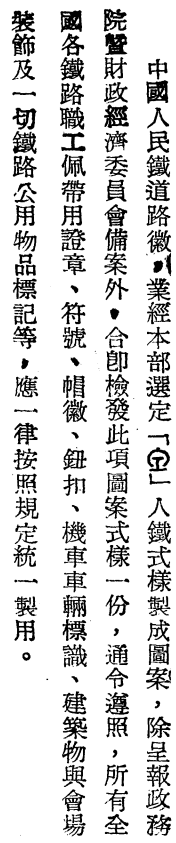 中國人民鐵道路徽，業經本部選定「」人鐵式樣製成圖案，除呈報政務
院暨財政經濟委員會備案外，合卽檢發此項圖案式樣一份，通令遵照，所有全
國各鐵路職工佩帶用證章、符號、帽徽、鈕扣、機車車輛標識、建築物與會場
裝飾及一切鐵路公用物品標記等，應一律按照規定統一製用。